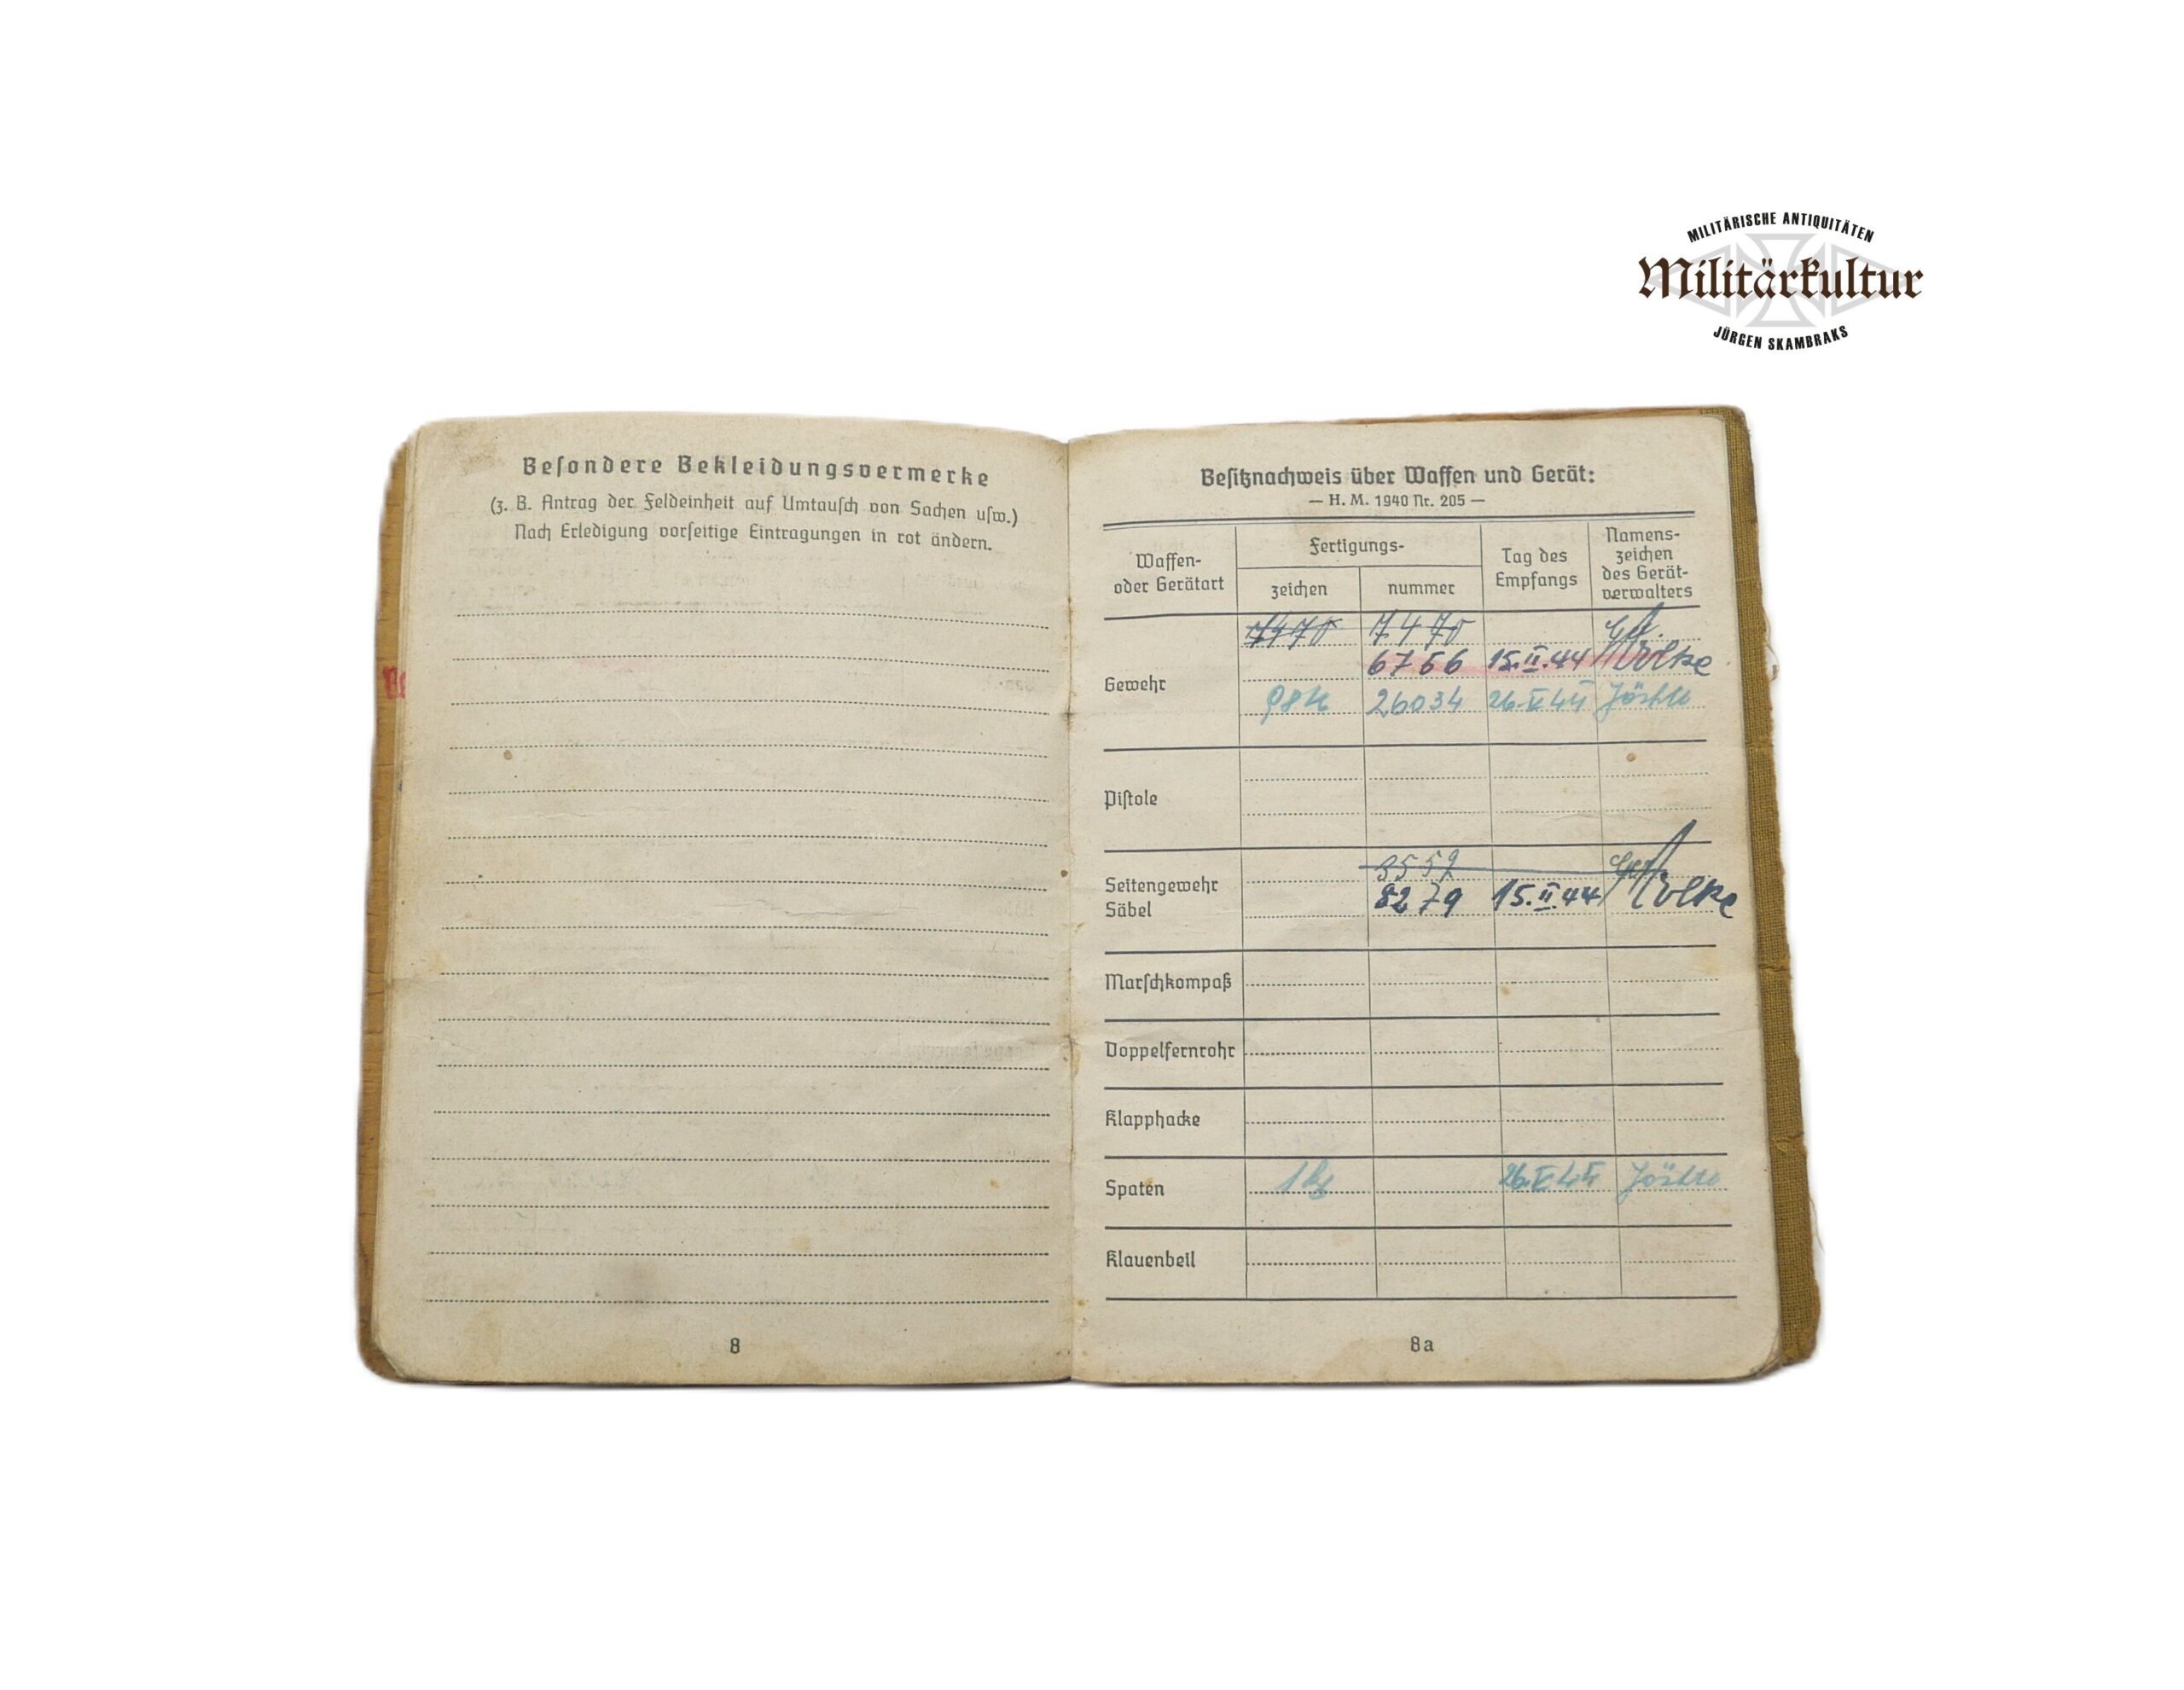 MILITÄRISCHE ANTIQUITÄTEN
Militärkultur
JÜRGEN SKAMBRAKS
Besondere Bekleidungsvermerke
(z. B. Antrag der Feldeinheit auf Umtausch von Sachen usw.)
Nach Erledigung vorseitige Eintragungen in rot ändern.
8
Besitznachweis über Waffen und Gerät:
— H. M. 1940 Nr. 205 —
Waffen- oder Gerätart
Fertigungs-
zeichen
nummer
Tag des Empfangs
Namens-zeichen des Gerät-verwalters
Gewehr
7470 7470
6756 15.II.44
98k 26034 26.V.44
Pistole
Seitengewehr
Säbel
3559
8279 15.II.44
Marschkompaß
Doppelfernrohr
Klapphacke
Spaten 26.V.44
Klauenbeil
8a